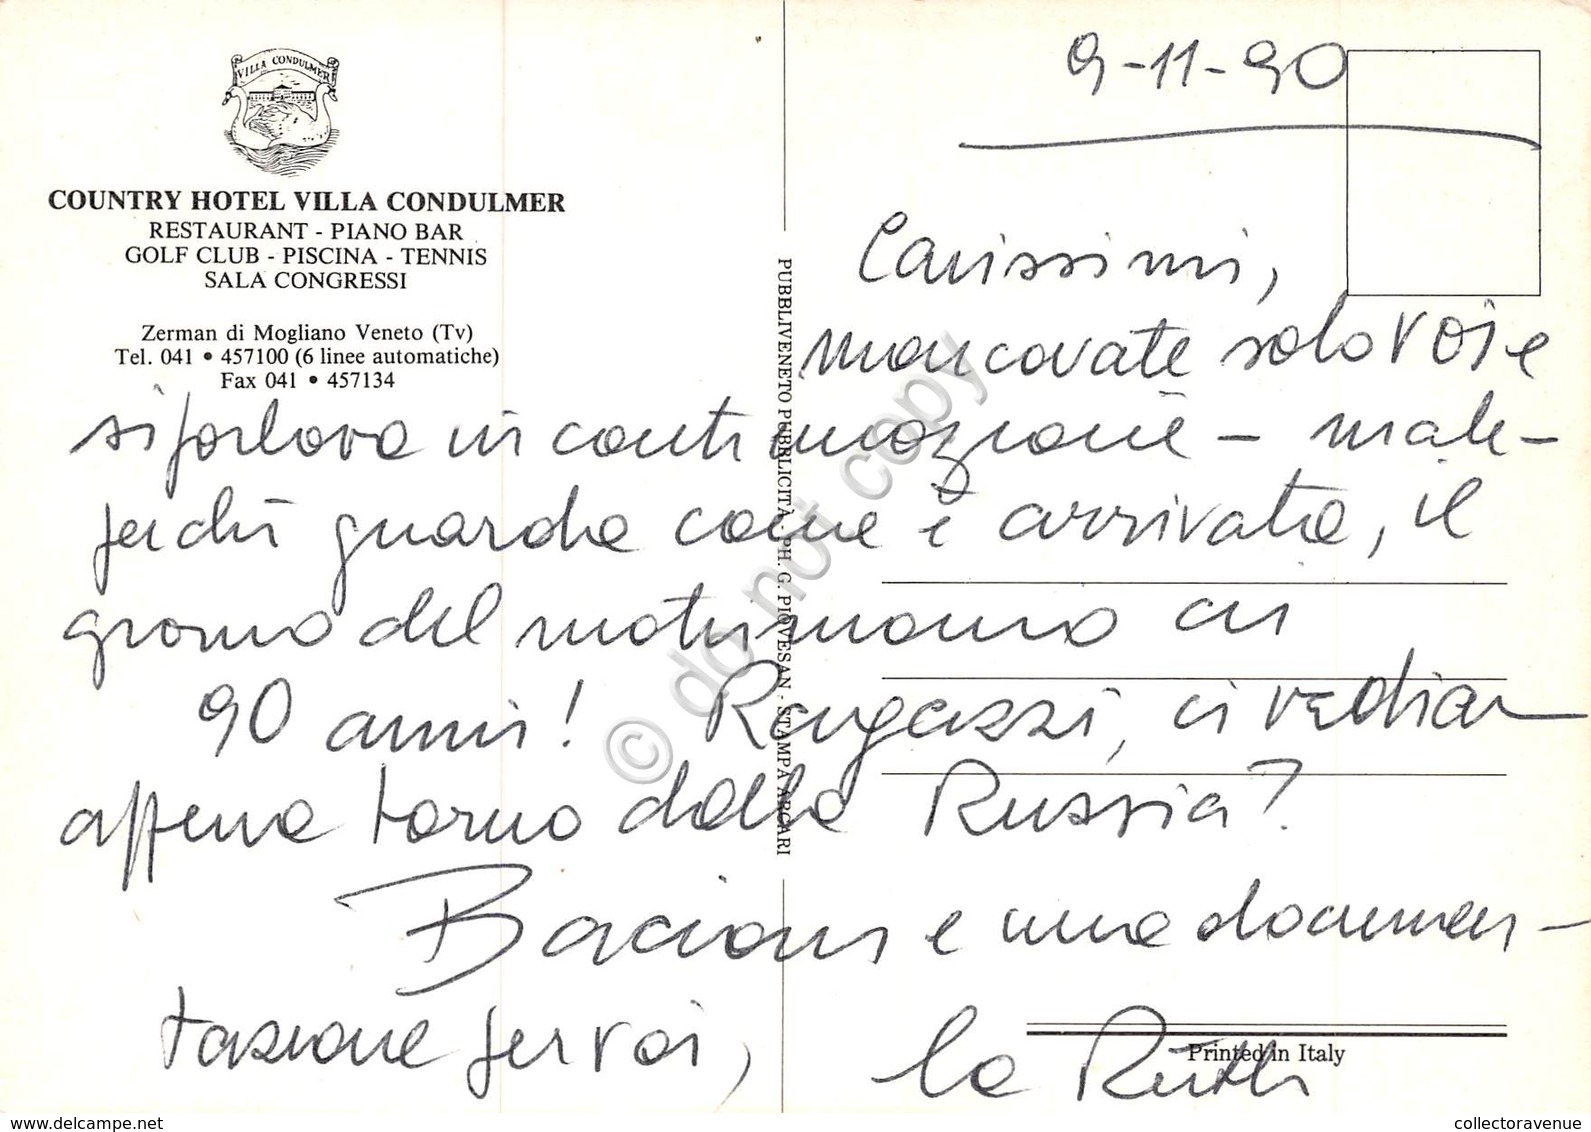 VILLA CONDULMER
COUNTRY HOTEL VILLA CONDULMER
RESTAURANT - PIANO BAR
GOLF CLUB - PISCINA - TENNIS
SALA CONGRESSI
Zerman di Mogliano Veneto (Tv)
Tel. 041 • 457100 (6 linee automatiche)
Fax 041 • 457134
PUBBLIVENETO PUBBLICITÀ - PH. G. PIOVESAN - STAMPA ARCARI
9-11-90
Carissimi,
mancavate solo voi e
si parlava in continuazione -
perchè guarda come è arrivata, il
giorno del matrimonio di
90 anni! Ragazzi, ci vediam
appena torno dalla Russia?
Bacioni e una documen-
tazione per voi,
la Ruth
Printed in Italy
© do not copy
collectoravenue